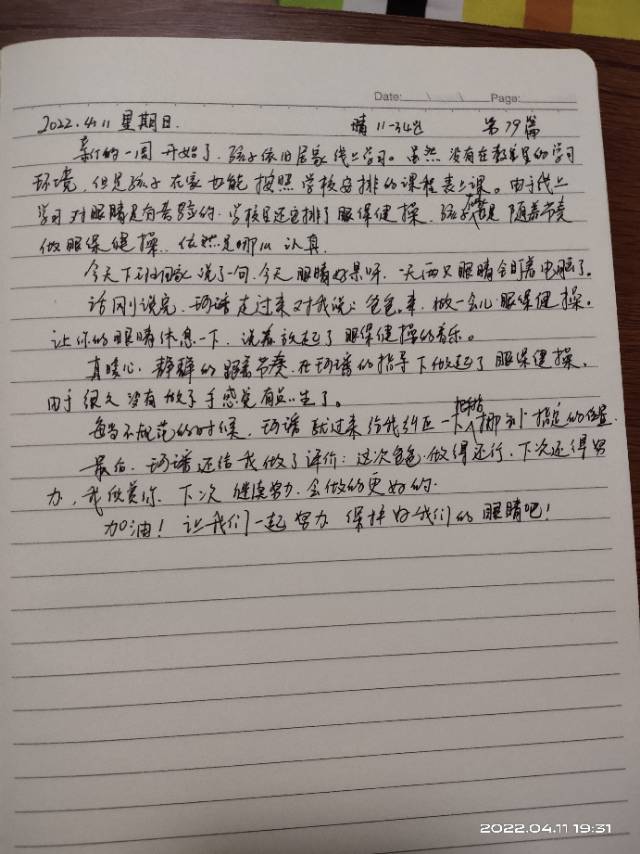 Date: Page:
2022.4.11 星期日. 晴 11-34℃ 第79篇
新的一周开始了,孩子依旧居家线上学习。虽然没有在教室里的学习
环境,但是孩子在家也能按照学校安排的课程表上课。由于线上
学习对眼睛是有考验的.学校里还安排了眼保健操.孩子都是随着节奏
做眼保健操.依然是那么认真.
今天下班回家说了一句.今天眼睛好累呀.一天两只眼睛全盯着电脑了。
话刚说完.诺走过来对我说:爸爸.来,做一会儿眼保健操。
让你的眼睛休息一下.说着放起了眼保健操的音乐。
真暖心.静静的跟着节奏.在的指导下做起了眼保健操.
由于很久没有做了手感觉有点生了。
每当不规范的时候.就过来给我纠正一下把手指挪到指定的位置.
最后.还给我做了评价:这次爸爸做得还行.下次还得努
力,我欣赏你.下次继续努力.会做的更好的.
加油!让我们一起努力保护好我们的眼睛吧!
2022.04.11 19:31